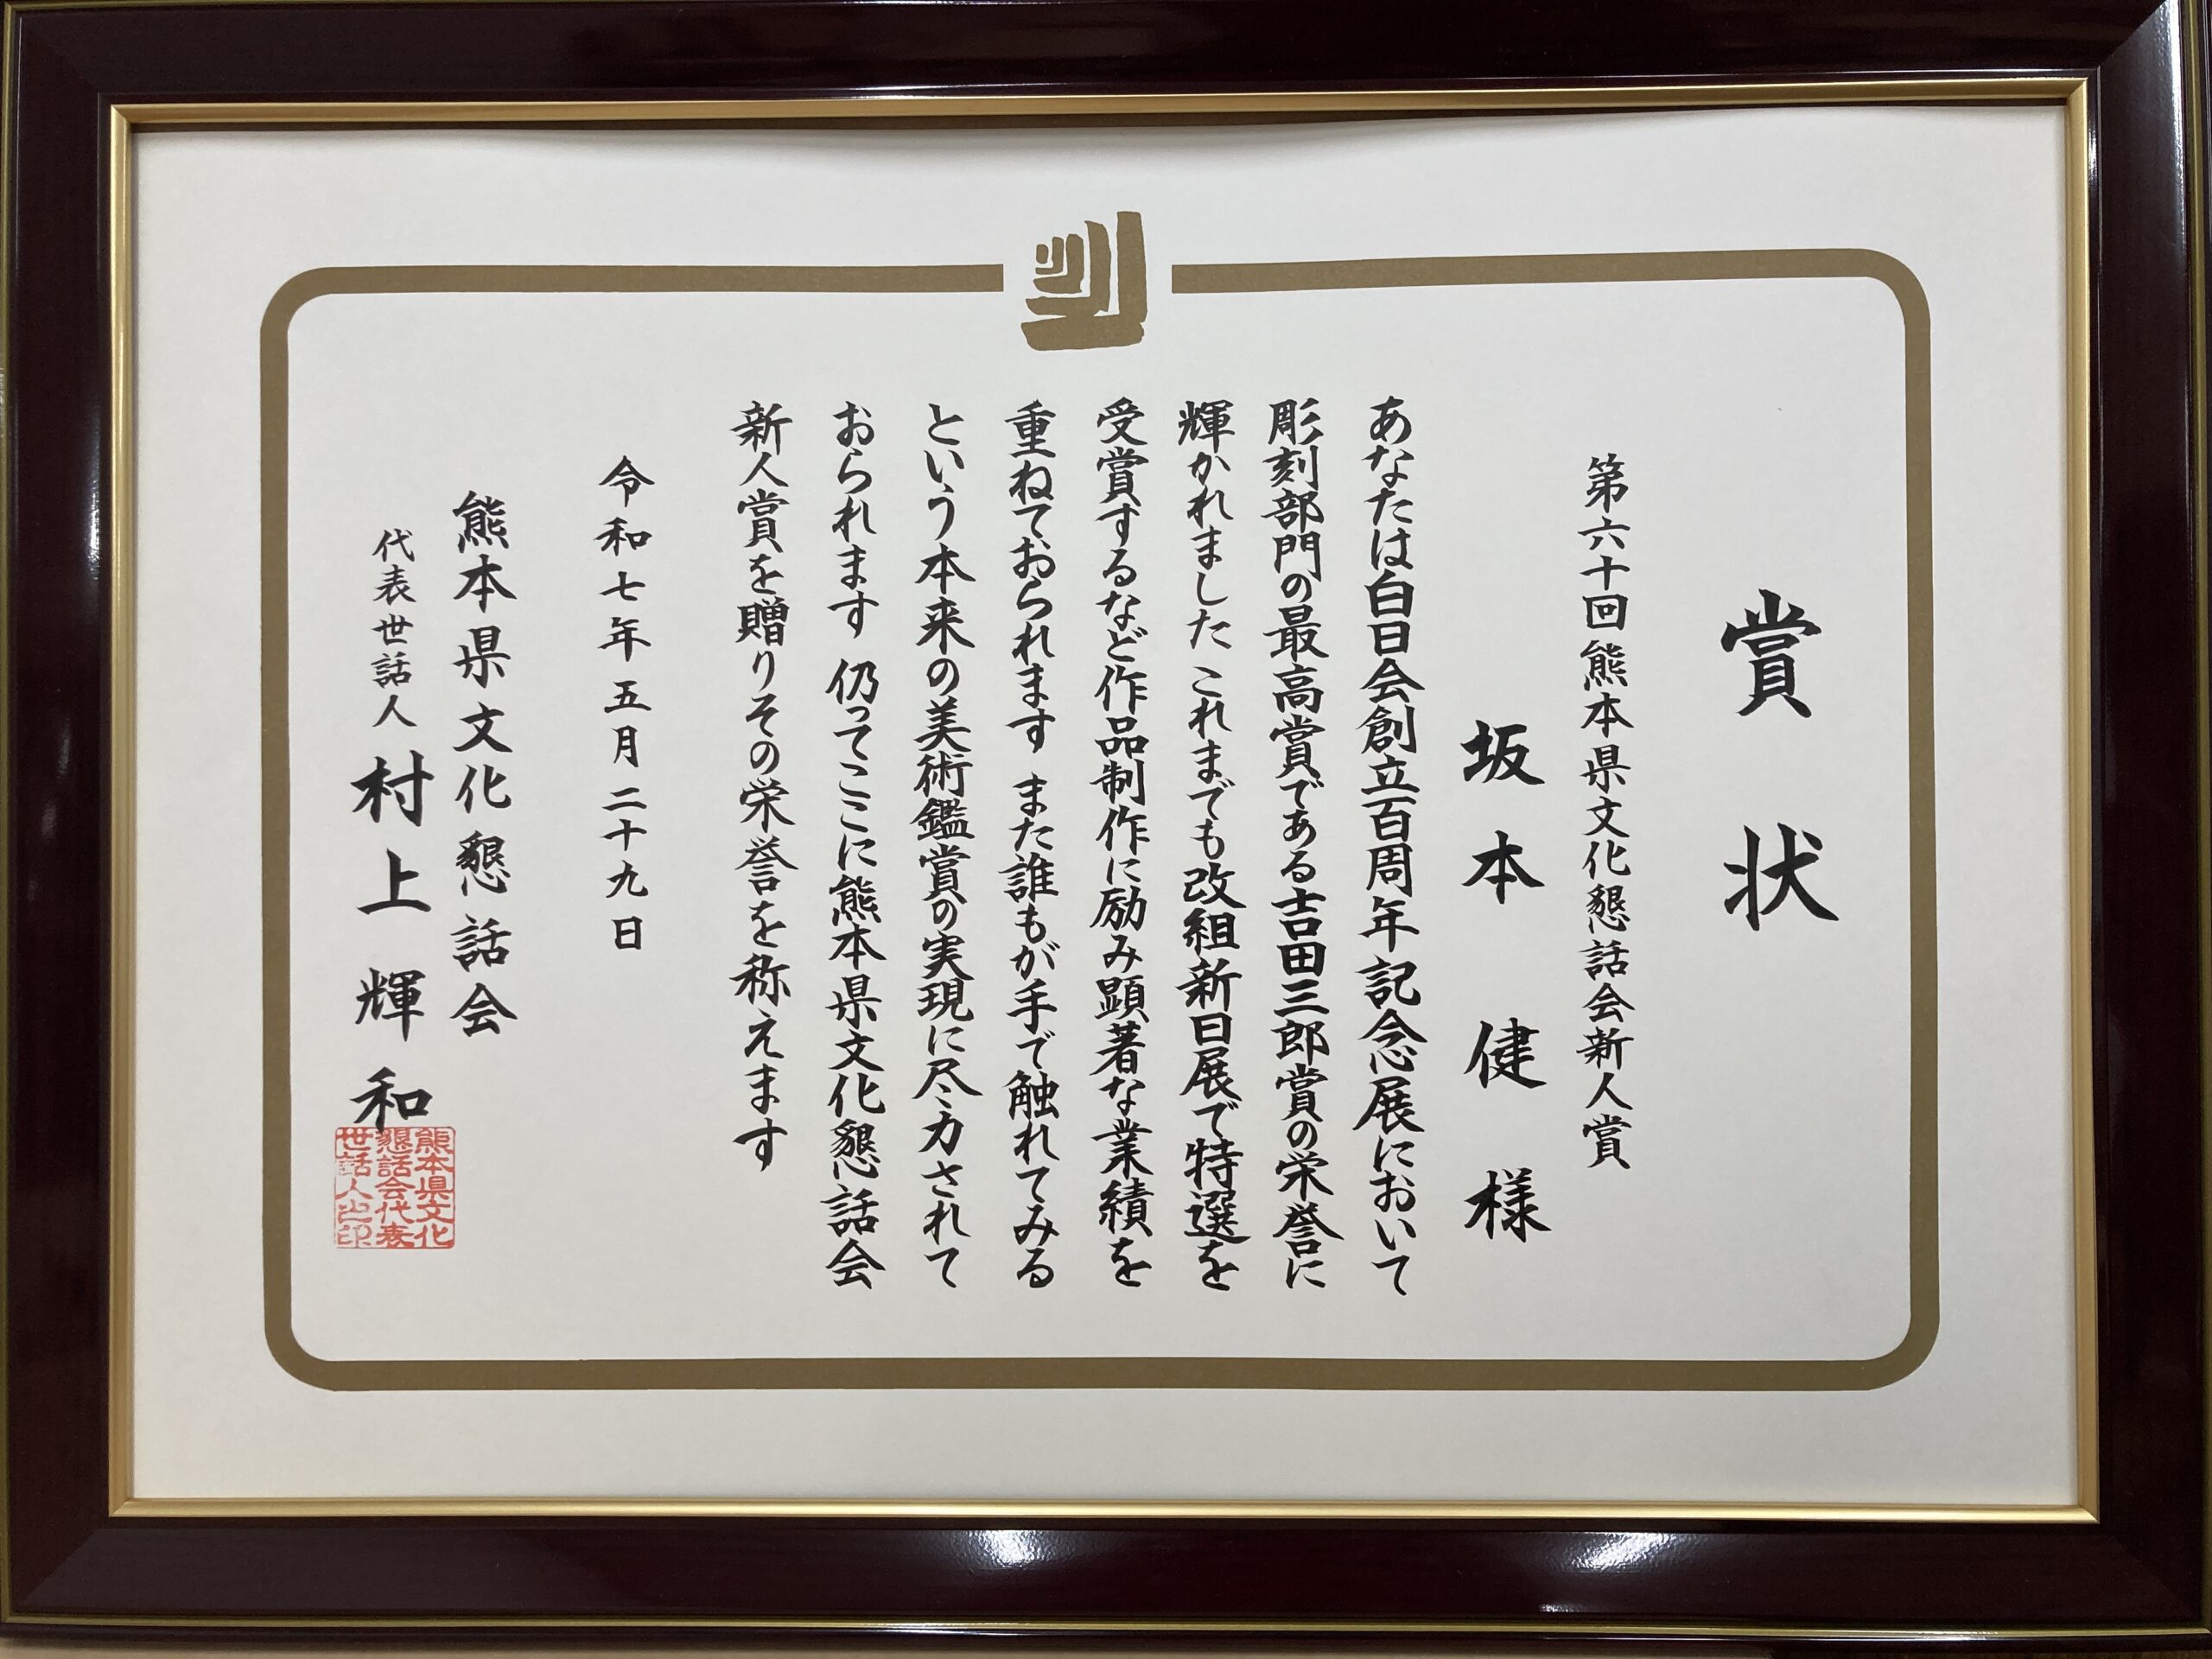 賞状
第六十回熊本県文化懇話会新人賞
坂本健様
あなたは白日会創立百周年記念展において
彫刻部門の最高賞である吉田三郎賞の栄誉に
輝かれました これまでも改組新日展で特選を
受賞するなど作品制作に励み顕著な業績を
重ねておられます また誰もが手で触れてみる
という本来の美術鑑賞の実現に尽力されて
おられます 仍ってここに熊本県文化懇話会
新人賞を贈りその栄誉を称えます
令和七年五月二十九日
熊本県文化懇話会
代表世話人 村上輝和
熊本県文化
懇話会代表
世話人之印